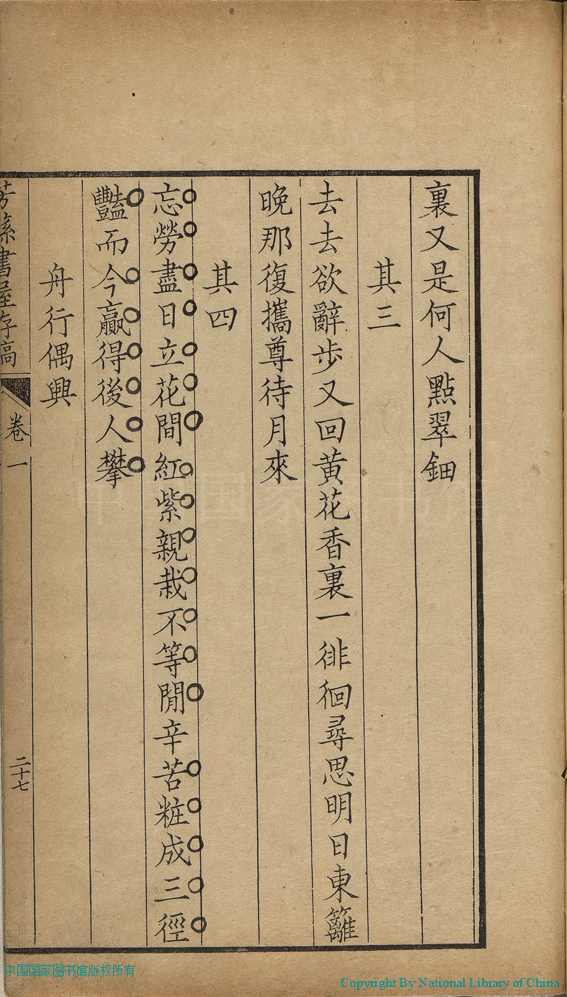 裏又是何人點翠鈿
其三
去去欲辭步又回黃花香裏一徘徊尋思明日東籬
晚那復攜尊待月來
其四
忘勞盡日立花間紅紫親栽不等閒辛苦粧成三徑
豔而今贏得後人攀
舟行偶興
書屋存稿
卷一
二十七
中国国家图书馆
中国国家图书馆版权所有
Copyright By National Library of China